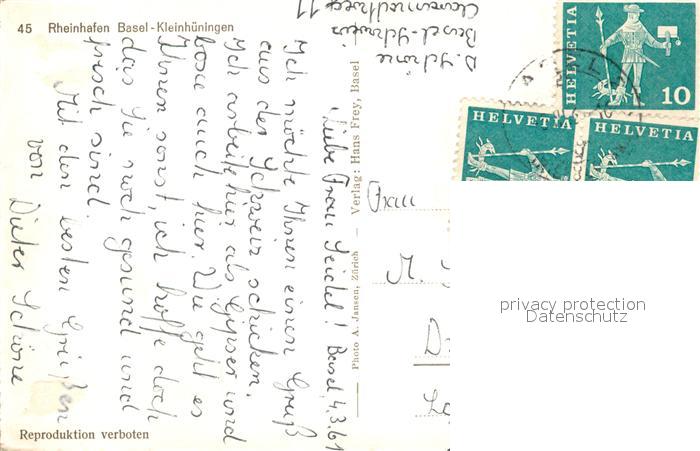 45 Rheinhafen Basel-Kleinhüningen
D. Schöne
Basel-Schweiz
11
HELVETIA
10
HELVETIA
HELVETIA
Liebe Frau Seidel! Basel, 4.3.61
Ich möchte Ihnen einen Gruß
aus der Schweiz schicken.
Ich arbeite hier als Gipser und
boxe auch hier. Wie geht es
Ihnen sonst, ich hoffe doch
das Sie noch gesund und
frisch sind.
Mit den besten Grüßen
von
Dieter Schöne
Verlag: Hans Frey, Basel
Photo A. Jansen, Zürich
Frau
M. S
D
privacy protection
Datenschutz
Reproduktion verboten